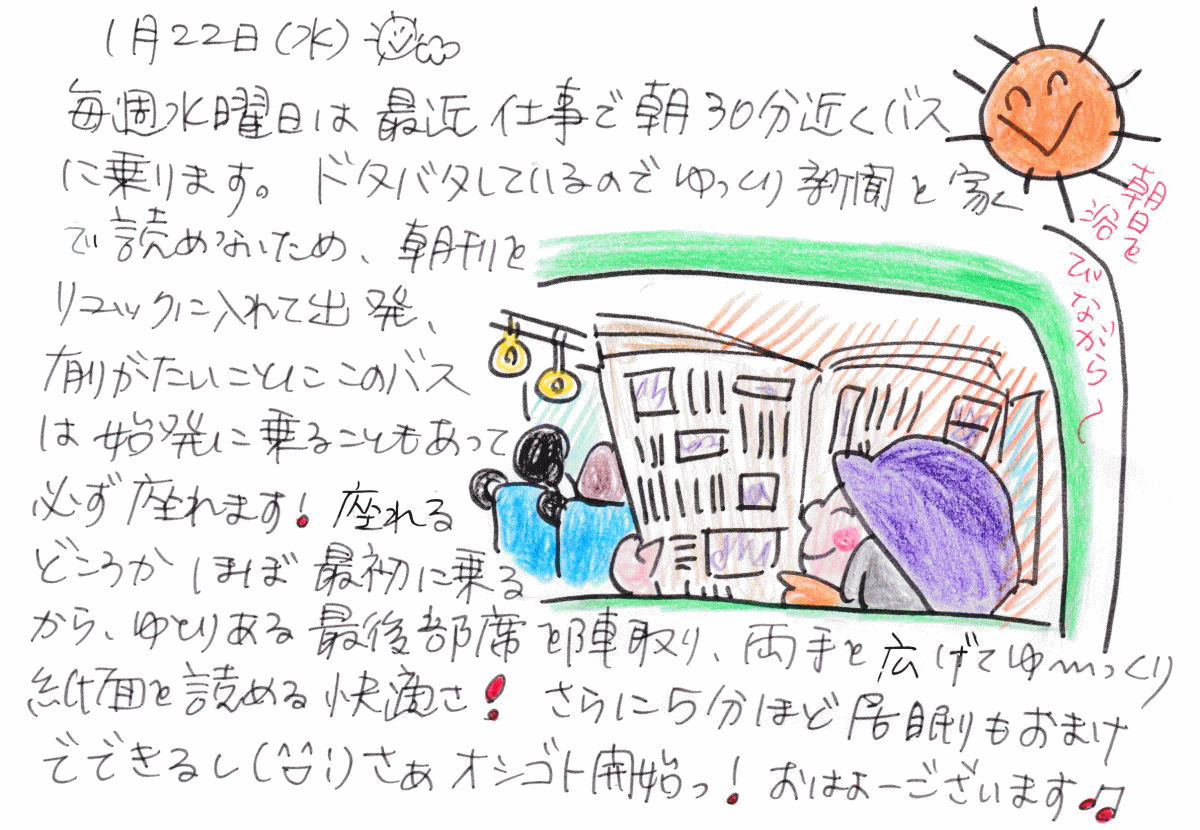 1月22日(水)
毎週水曜日は最近仕事で朝30分近くバス
に乗ります。ドタバタしているのでゆっくり新聞を家
で読めないため、朝刊を
リュックに入れて出発、
有りがたいことにこのバス
は始発に乗ることもあって
必ず座れます!座れる
どころかほぼ最初に乗る
から、ゆとりある最後部席を陣取り、両手を広げてゆ〰っくり
紙面を読める快適さ!さらに5分ほど居眠りもおまけ
でできるし(^▽^!)さぁオシゴト開始っ!おはよーございます♫
朝日を
浴
びながら〜